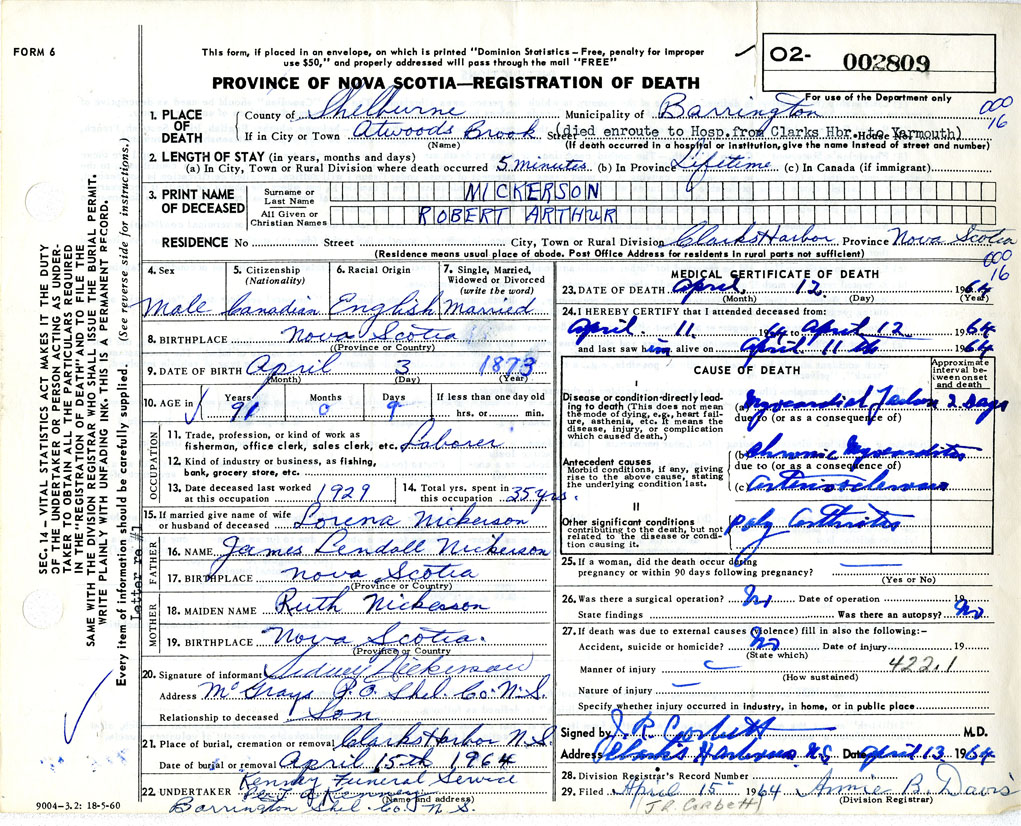 FORM 6
This form, if placed in an envelope, on which is printed "Dominion Statistics – Free, penalty for improper
use $50," and properly addressed will pass through the mail "FREE"
PROVINCE OF NOVA SCOTIA—REGISTRATION OF DEATH
O2- 002809
For use of the Department only
000
16
1. PLACE OF DEATH
County of Shelburne Municipality of Barrington
If in City or Town Atwoods Brook Street (died enroute to Hosp. from Clarks Hbr. to Yarmouth) House No.
(Name) (If death occurred in a hospital or institution, give the name instead of street and number)
2. LENGTH OF STAY (in years, months and days)
(a) In City, Town or Rural Division where death occurred 5 minutes (b) In Province Lifetime (c) In Canada (if immigrant)
3. PRINT NAME OF DECEASED
Surname or Last Name NICKERSON
All Given or Christian Names ROBERT ARTHUR
RESIDENCE No. Street City, Town or Rural Division Clarks Harbor Province Nova Scotia
(Residence means usual place of abode. Post Office Address for residents in rural parts not sufficient)
000
16
4. Sex Male
5. Citizenship (Nationality) Canadian
6. Racial Origin English
7. Single, Married, Widowed or Divorced (write the word) Married
8. BIRTHPLACE Nova Scotia
(Province or Country)
9. DATE OF BIRTH April 3 1873
(Month) (Day) (Year)
10. AGE in Years 91 Months 0 Days 9 If less than one day old hrs. or min.
OCCUPATION
11. Trade, profession, or kind of work as
fisherman, office clerk, sales clerk, etc. Laborer
12. Kind of industry or business, as fishing,
bank, grocery store, etc.
13. Date deceased last worked at this occupation 1929
14. Total yrs. spent in this occupation 35 yrs.
15. If married give name of wife or husband of deceased Lorena Nickerson
FATHER
16. NAME James Lendall Nickerson
17. BIRTHPLACE Nova Scotia
(Province or Country)
MOTHER
18. MAIDEN NAME Ruth Nickerson
19. BIRTHPLACE Nova Scotia.
(Province or Country
20. Signature of informant Sidney Nickerson
Address McGrays P.O. Shel. Co. N.S.
Relationship to deceased Son
21. Place of burial, cremation or removal Clarks Harbor N.S.
Date of burial or removal April 15th 1964
Kenney Funeral Service
22. UNDERTAKER
(Name and address)
Barrington Shel. Co. N.S.
9004-3.2: 18-5-60
MEDICAL CERTIFICATE OF DEATH
23. DATE OF DEATH April 12 1964
(Month) (Day) (Year)
24. I HEREBY CERTIFY that I attended deceased from:
April 11 1964 to April 12 1964
and last saw him alive on April 11th 1964
CAUSE OF DEATH
Approximate interval between onset and death
I
Disease or condition directly leading to death (This does not mean the mode of dying, e.g., heart failure, asthenia, etc. It means the disease, injury, or complication which caused death.)
(a) Myocardial Failure 2 Days
due to (or as a consequence of)
Antecedent causes
Morbid conditions, if any, giving rise to the above cause, stating the underlying condition last.
(b) Chronic Myocarditis
due to (or as a consequence of)
(c) Arteriosclerosis
II
Other significant conditions contributing to the death, but not related to the disease or condition causing it.
poly arthritis
25. If a woman, did the death occur during
pregnancy or within 90 days following pregnancy?
(Yes or No)
26. Was there a surgical operation? No Date of operation 19
State findings Was there an autopsy? No
27. If death was due to external causes (violence) fill in also the following:–
Accident, suicide or homicide? No Date of injury 19
(State which)
Manner of injury 422.1
(How sustained)
Nature of injury
Specify whether injury occurred in industry, in home, or in public place
Signed by J. R. Corbett M.D.
Address Clark's Harbour N.S. Date April 13 1964
28. Division Registrar's Record Number
29. Filed April 15 1964 Annie B. Davis
(J R Corbett) (Division Registrar)
SEC. 14 – VITAL STATISTICS ACT MAKES IT THE DUTY
OF THE UNDERTAKER OR PERSON ACTING AS UNDER-
TAKER TO OBTAIN ALL THE PARTICULARS REQUIRED
IN THE "REGISTRATION OF DEATH" AND TO FILE THE
SAME WITH THE DIVISION REGISTRAR WHO SHALL ISSUE THE BURIAL PERMIT.
WRITE PLAINLY WITH UNFADING INK. THIS IS A PERMANENT RECORD.
Every item of information should be carefully supplied. (See reverse side for instructions.)
Letter re #1